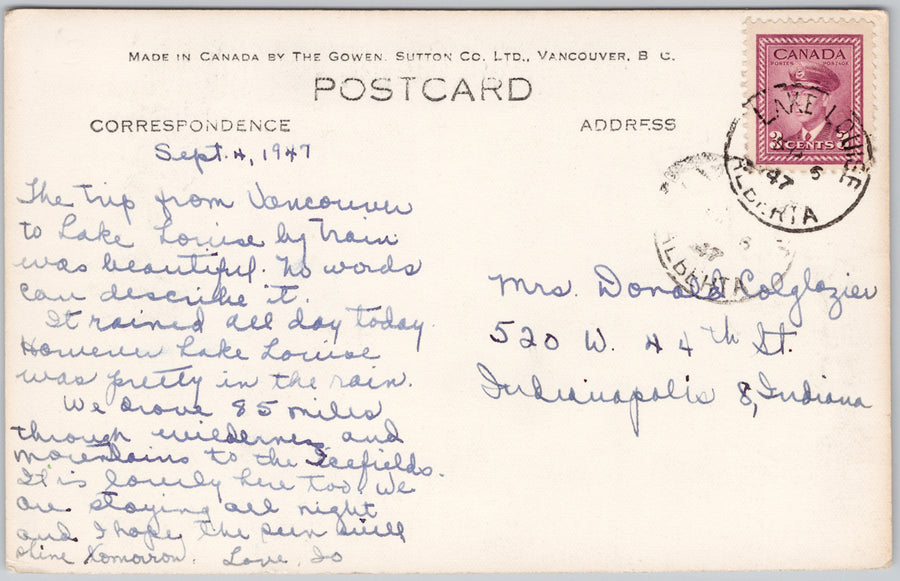 MADE IN CANADA BY THE GOWEN, SUTTON CO. LTD., VANCOUVER, B. C.
POSTCARD
CORRESPONDENCE
ADDRESS
Sept. 4, 1947
The trip from Vancouver
to Lake Louise by train
was beautiful. No words
can describe it.
It rained all day today.
However Lake Louise
was pretty in the rain.
We drove 85 miles
through wilderness and
mountains to the Icefields.
It is lovely here too. We
are staying all night
and I hope the sun will
shine tomorrow. Love, Jo
Mrs. Donald Colglazier
520 W. 44th St.
Indianapolis 8, Indiana
CANADA
POSTES POSTAGE
3 CENTS 3
LAKE LOUISE
5
47
ALBERTA
5
47
ALBERTA